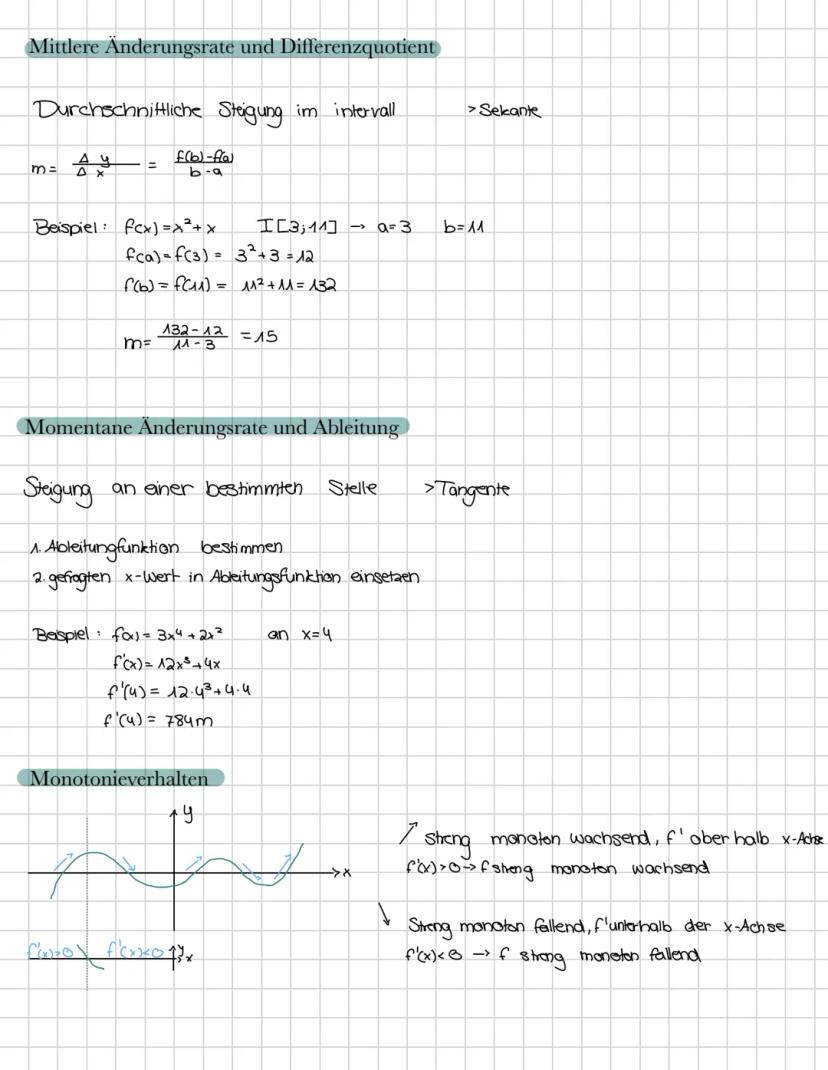 Mittlere Änderungsrate und Differenzquotient
Durchschnittliche Steigung im intervall > Sekante
m = Δ y / Δ x = f(b)-f(a) / b-a
Beispiel: f(x)=x²+x I[3;11] → a=3 b=11
f(a)=f(3) = 3²+3=12
f(b)=f(11) = 11²+11=132
m= 132-12 / 11-3 =15
Momentane Änderungsrate und Ableitung
Steigung an einer bestimmten Stelle >Tangente
1. Ableitungfunktion bestimmen
2. gefragten x-Wert in Ableitungsfunktion einsetzen
Beispiel: f(x) = 3x⁴+2x² an x=4
f'(x)=12x³+4x
f'(4)= 12·4³+4·4
f'(4)= 784m
Monotonieverhalten
y
x
↗ streng monoton wachsend, f' oberhalb x-Achse
f'(x)>0→f streng monoton wachsend
↘ Streng monoton fallend, f' unterhalb der x-Achse
f'(x)<0 → f streng monoton fallend
f'(x)>0 f'(x)<0 y x